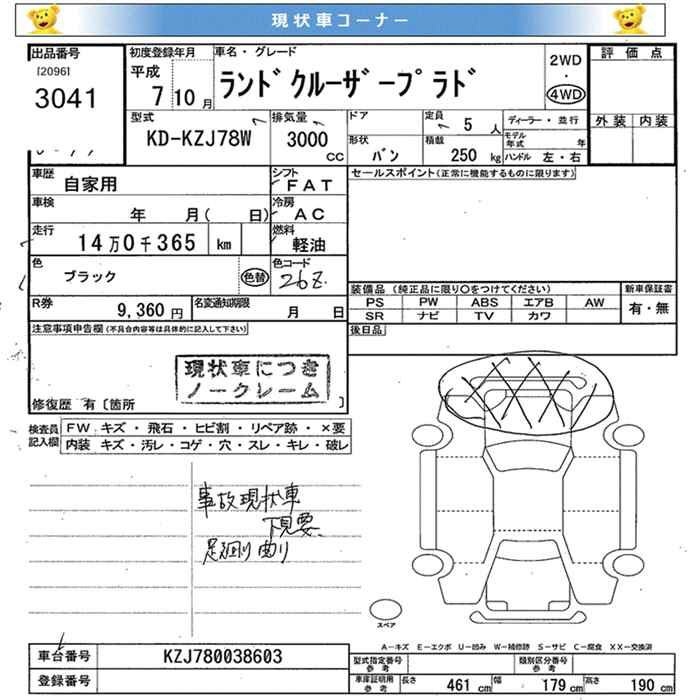 現状車コーナー
出品番号 初度登録年月 車名・グレード 2WD 評価点
[2096] 平成 ・
3041 7 10月 ランドクルーザープラド 4WD
型式 排気量 ドア 定員 ディーラー・並行 外装 内装
KD-KZJ78W 3000 cc 5人 モデル年式 年
形状 バン 積載 250kg ハンドル 左・右
車歴 自家用 シフト FAT セールスポイント(正常に機能するものに限ります)
車検 年 月( 日) 冷房 AC
走行 14万0千365 km 燃料 軽油
色 ブラック 色替 色コード 26Z.
装備品 (純正品に限り○をつけてください) 新車保証書
R券 9,360円 名変通知期限 月 日 PS PW ABS エアB AW 有・無
SR ナビ TV カワ
注意事項申告欄(不具合内容等は具体的に記入して下さい) 後日品
現状車につき
ノークレーム
修復歴 有〔箇所 〕
検査員 FW キズ・飛石・ヒビ割・リペア跡・×要
記入欄 内装 キズ・汚レ・コゲ・穴・スレ・キレ・破レ
事故現状車
下見要、
足廻り曲り
スペア
A−キズ E−エクボ U−凹み W−補修跡 S−サビ C−腐食 XX−交換済
車台番号 KZJ780038603 型式指定番号 参考 類別区分番号 参考
登録番号 車庫証明用 参考 長さ 461cm 幅 179cm 高さ 190cm